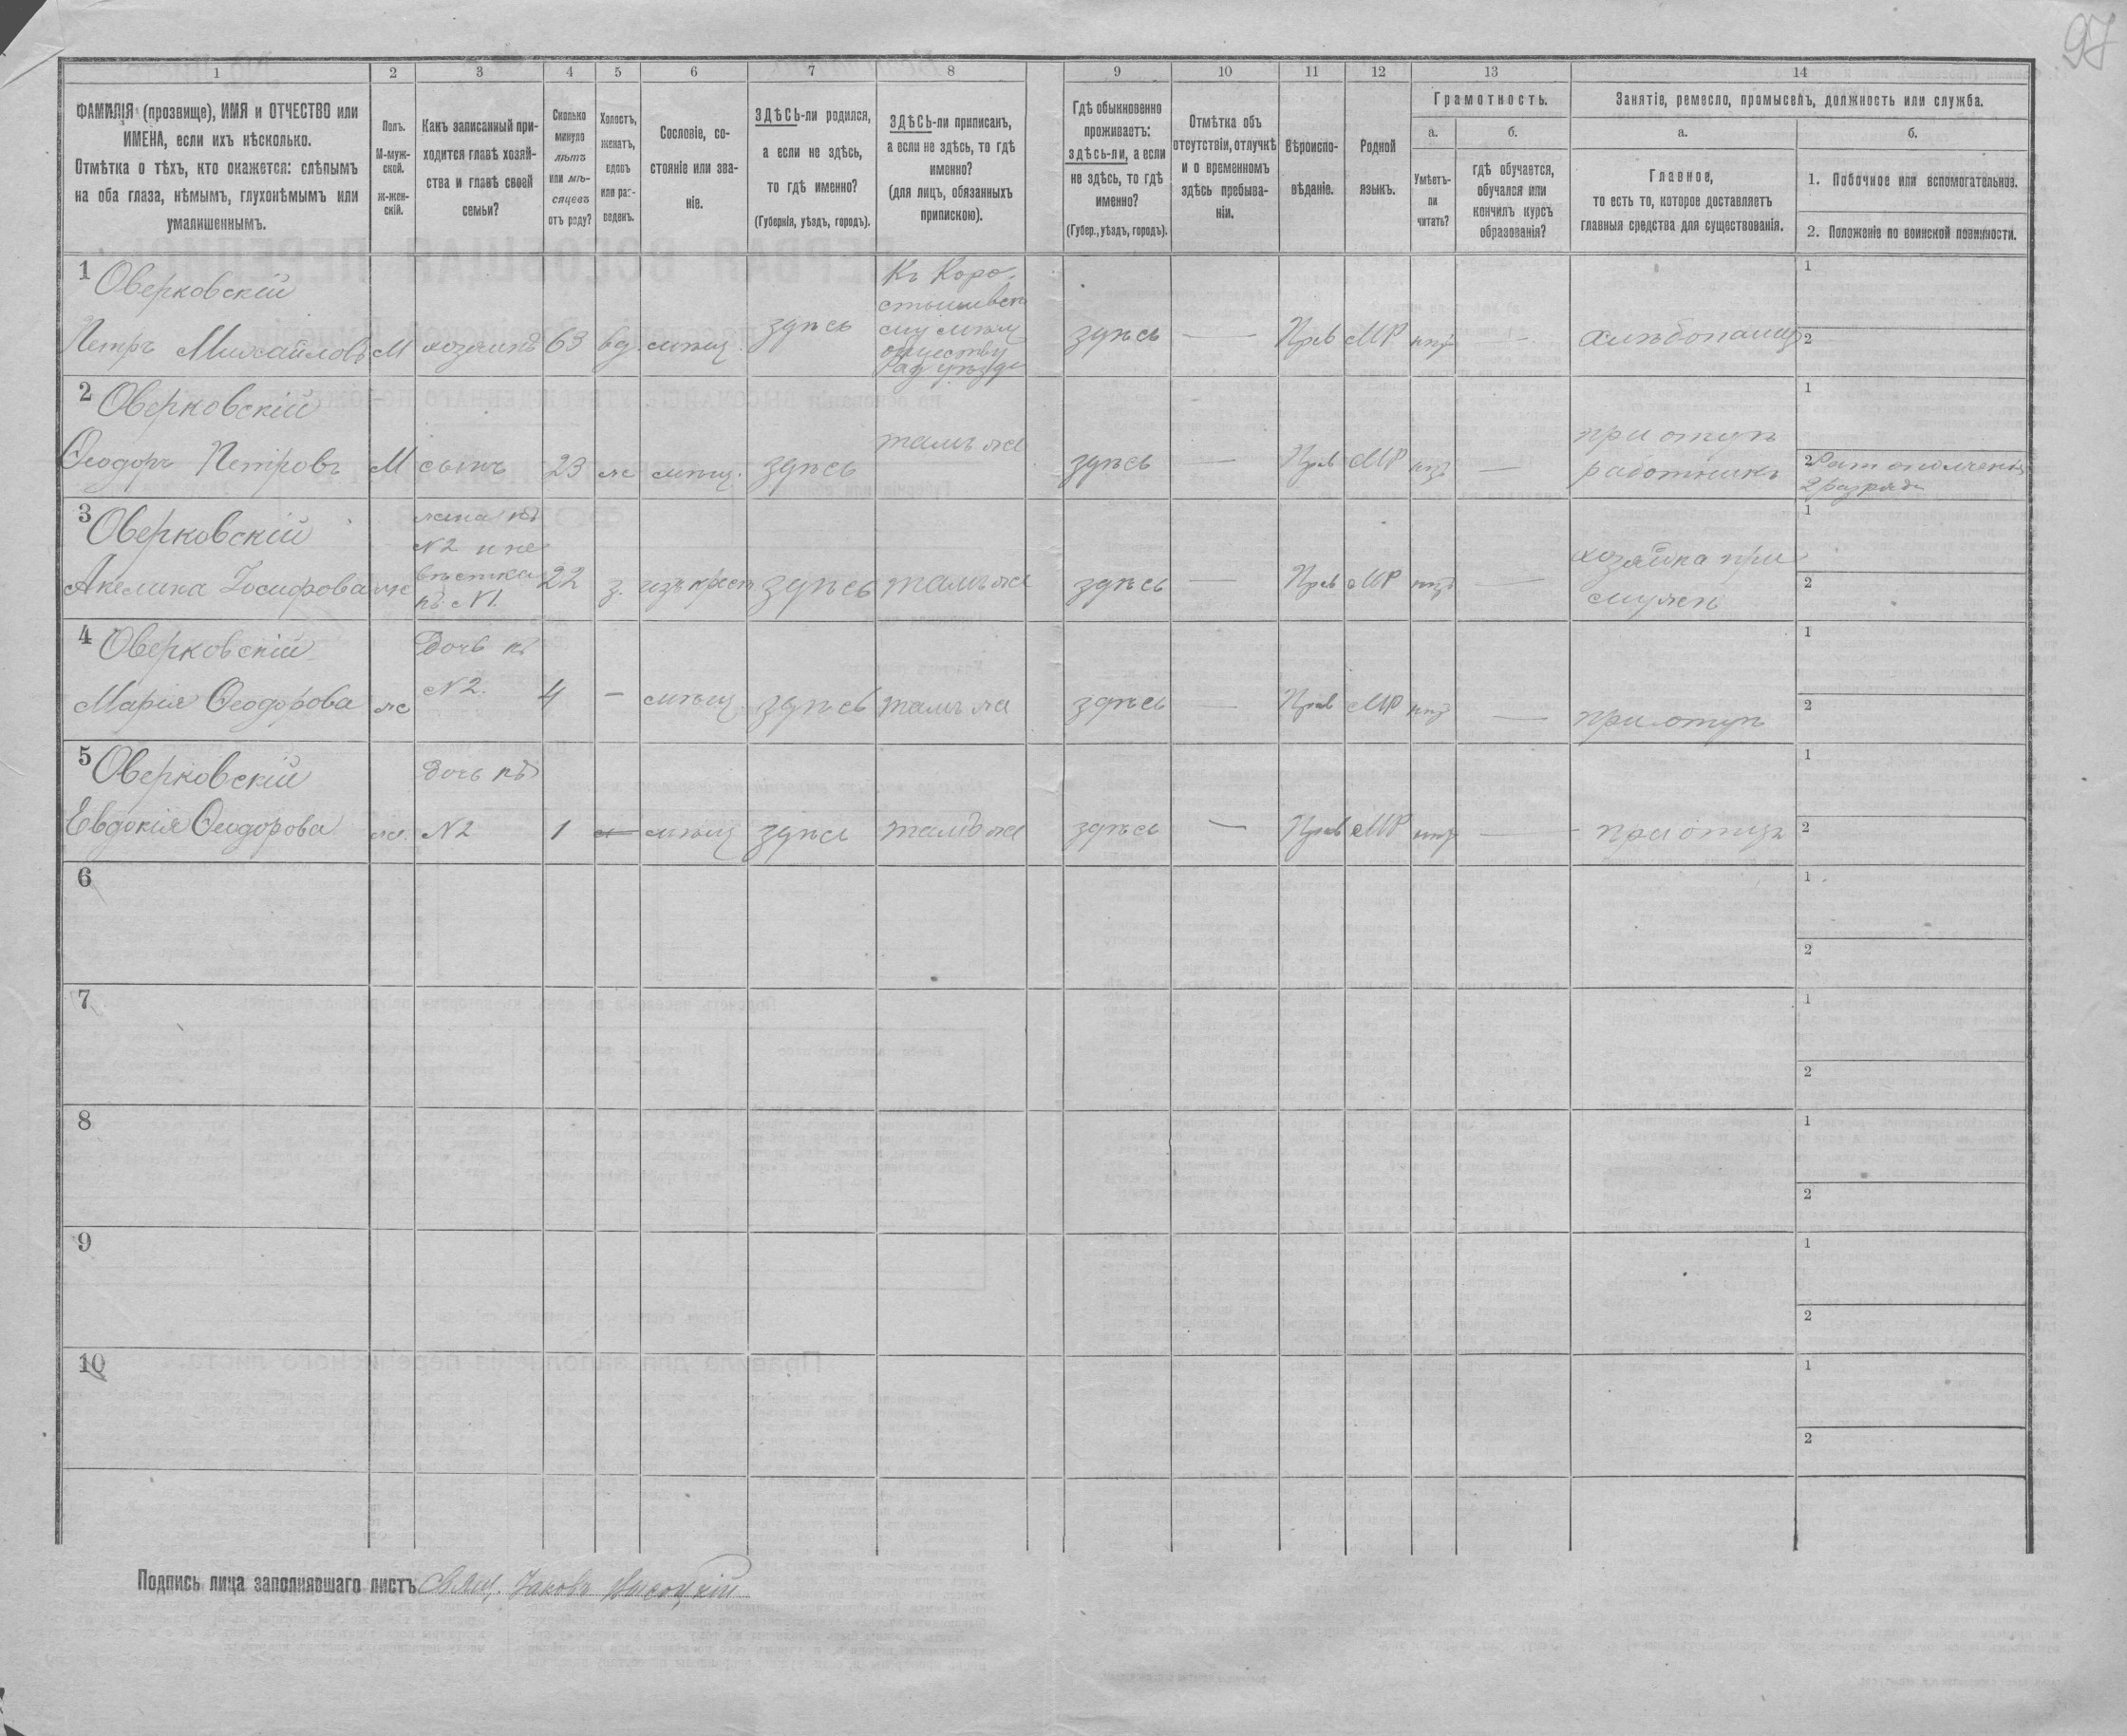 97
1
2
3
4
5
6
7
8
9
10
11
12
13
14
ФАМИЛІЯ (прозвище), ИМЯ и ОТЧЕСТВО или
ИМЕНА, если ихъ нѣсколько.
Отмѣтка о тѣхъ, кто окажется: слѣпымъ
на оба глаза, нѣмымъ, глухонѣмымъ или
умалишеннымъ.
Полъ.
М-муж-
ской.
ж-жен-
скій.
Какъ записанный при-
ходится главѣ хозяй-
ства и главѣ своей
семьи?
Сколько
минуло
лѣтъ
или мѣ-
сяцевъ
отъ роду?
Холостъ,
женатъ,
вдовъ
или раз-
веденъ.
Сословіе, со-
стояніе или зва-
ніе.
ЗДѢСЬ-ли родился,
а если не здѣсь,
то гдѣ именно?
(Губернія, уѣздъ, городъ).
ЗДѢСЬ-ли приписанъ,
а если не здѣсь, то гдѣ
именно?
(для лицъ, обязанныхъ
припискою).
Гдѣ обыкновенно
проживаетъ:
здѣсь-ли, а если
не здѣсь, то гдѣ
именно?
(Губер., уѣздъ, городъ).
Отмѣтка объ
отсутствіи, отлучкѣ
и о временномъ
здѣсь пребыва-
ніи.
Вѣроиспо-
вѣданіе.
Родной
языкъ.
Грамотность.
а.
б.
Умѣетъ-
ли
читать?
гдѣ обучается,
обучался или
кончилъ курсъ
образованія?
Занятіе, ремесло, промыселъ, должность или служба.
а.
б.
Главное,
то есть то, которое доставляетъ
главныя средства для существованія.
1. Побочное или вспомогательное.
2. Положеніе по воинской повинности.
1 Оверковскій
Петръ Михайловъ М хозяинъ 63 вд. мѣщ. здѣсь
Къ Коро-
стышевск
ому мѣщ
обществу
Рад уѣзда
здѣсь — Прав МР нтъ — хлѣбопашц
1
2
2 Оверковскій
Ѳеодоръ Петровъ М сынъ 23 ж мѣщ. здѣсь тамъ же здѣсь — Прав МР нтъ —
при отцѣ
работникъ
1
2 Рат ополченія
2 разряда
3 Оверковскій
Акелина Іосифова ж
жена къ
N2 и не
вѣстка
къ N1.
22 з. изъ крест здѣсь тамъ же здѣсь — Прав МР нтъ —
хозяйка при
мужѣ
1
2
4 Оверковскій
Марія Ѳеодорова ж
Дочь къ
N2.
4 — мѣщ здѣсь тамъ же здѣсь — Прав МР нтъ — при отцѣ
1
2
5 Оверковскій
Евдокія Ѳеодорова ж.
Дочь къ
N2
1 — мѣщ здѣсь тамъ же здѣсь — Прав МР нтъ — при отцѣ
1
2
6
1
2
7
1
2
8
1
2
9
1
2
10
1
2
Подпись лица заполнявшаго листъ Яковъ